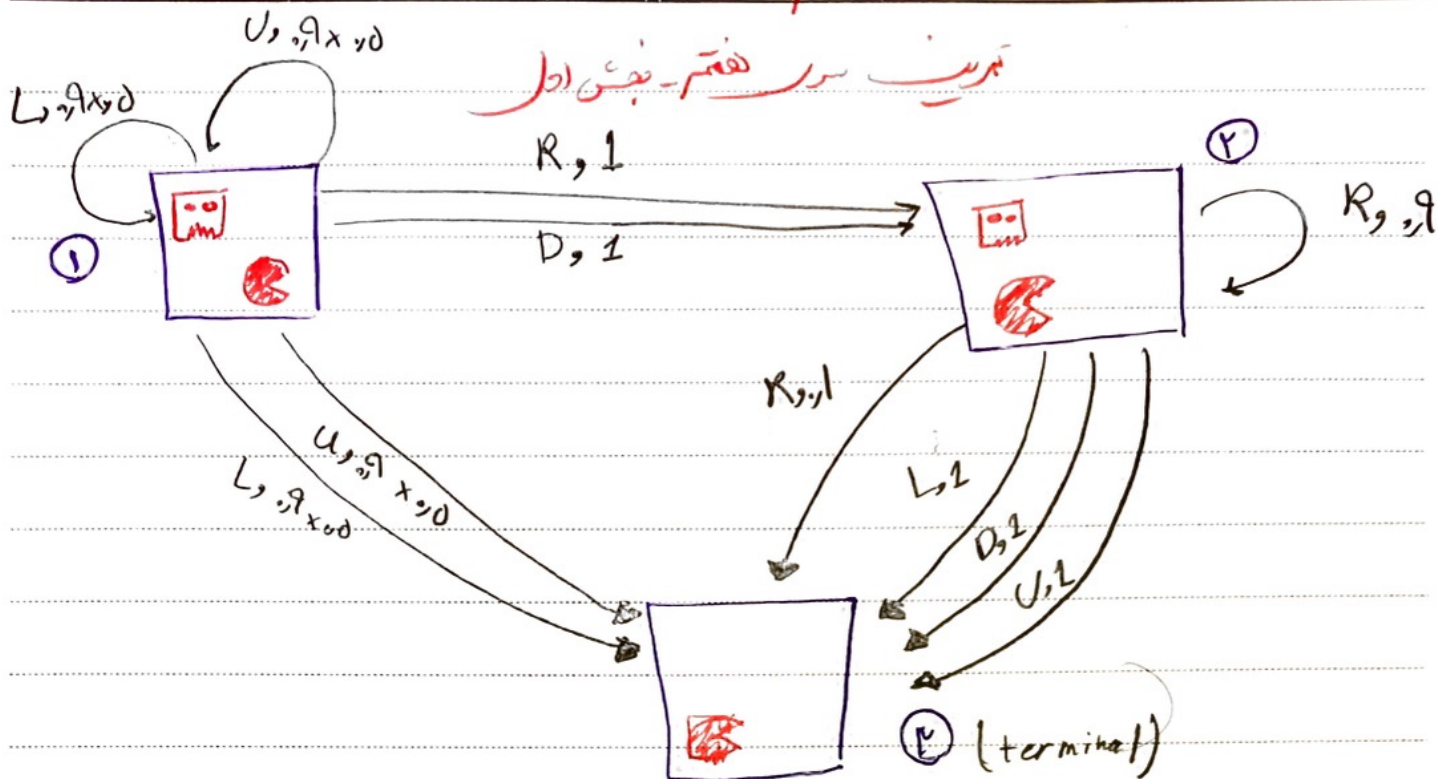 تمرین سری هفتم - بخش اول
U, ۰,۹x۰,۵
L, ۰,۹x۰,۵
R, 1
D, 1
۱
۲
R, ۰,۹
R, ۰,۱
U, ۰,۹x۰,۵
L, ۰,۹x۰,۵
L, 1
D, 1
U, 1
۳ (terminal)